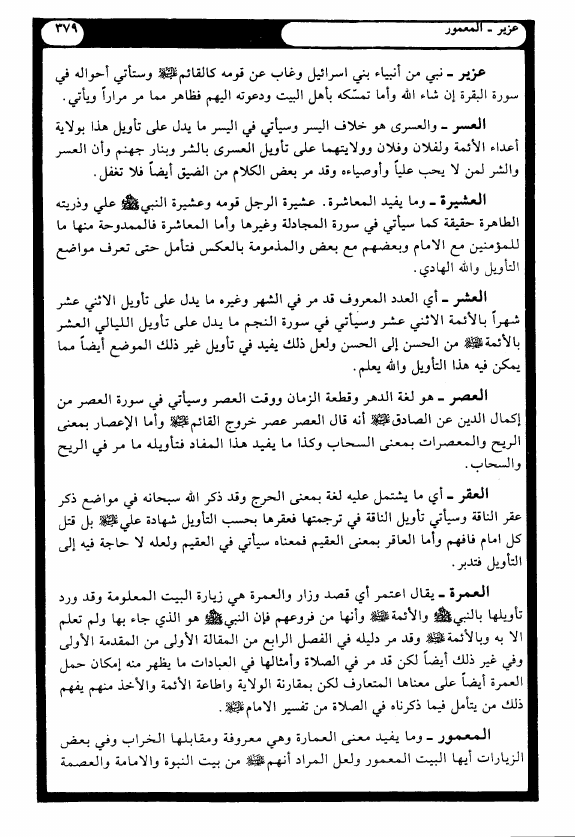 ٣٧٩
عزير ـ المعمور
عزير ـ نبي من أنبياء بني اسرائيل وغاب عن قومه كالقائم ﷺ وستأتي أحواله في
سورة البقرة إن شاء الله وأما تمسّكه بأهل البيت ودعوته اليهم فظاهر مما مر مراراً ويأتي.
العسر ـ والعسرى هو خلاف اليسر وسيأتي في اليسر ما يدل على تأويل هذا بولاية
أعداء الأئمة ولفلان وفلان وولايتهما على تأويل العسرى بالشر وبنار جهنم وأن العسر
والشر لمن لا يحب علياً وأوصياءه وقد مر بعض الكلام من الضيق أيضاً فلا تغفل.
العشيرة ـ وما يفيد المعاشرة. عشيرة الرجل قومه وعشيرة النبي ﷺ علي وذريته
الطاهرة حقيقة كما سيأتي في سورة المجادلة وغيرها وأما المعاشرة فالممدوحة منها ما
للمؤمنين مع الامام وبعضهم مع بعض والمذمومة بالعكس فتأمل حتى تعرف مواضع
التأويل والله الهادي.
العشر ـ أي العدد المعروف قد مر في الشهر وغيره ما يدل على تأويل الاثني عشر
شهراً بالأئمة الاثني عشر وسيأتي في سورة النجم ما يدل على تأويل الليالي العشر
بالأئمة ﷺ من الحسن إلى الحسن ولعل ذلك يفيد في تأويل غير ذلك الموضع أيضاً مما
يمكن فيه هذا التأويل والله يعلم.
العصر ـ هو لغة الدهر وقطعة الزمان ووقت العصر وسيأتي في سورة العصر من
إكمال الدين عن الصادق ﷺ أنه قال العصر عصر خروج القائم ﷺ وأما الإعصار بمعنى
الريح والمعصرات بمعنى السحاب وكذا ما يفيد هذا المفاد فتأويله ما مر في الريح
والسحاب.
العقر ـ أي ما يشتمل عليه لغة بمعنى الحرج وقد ذكر الله سبحانه في مواضع ذكر
عقر الناقة وسيأتي تأويل الناقة في ترجمتها فعقرها بحسب التأويل شهادة علي ﷺ بل قتل
كل امام فافهم وأما العاقر بمعنى العقيم فمعناه سيأتي في العقيم ولعله لا حاجة فيه إلى
التأويل فتدبر.
العمرة ـ يقال اعتمر أي قصد وزار والعمرة هي زيارة البيت المعلومة وقد ورد
تأويلها بالنبي ﷺ والأئمة ﷺ وأنها من فروعهم فإن النبي ﷺ هو الذي جاء بها ولم تعلم
الا به وبالأئمة ﷺ وقد مر دليله في الفصل الرابع من المقالة الأولى من المقدمة الأولى
وفي غير ذلك أيضاً لكن قد مر في الصلاة وأمثالها في العبادات ما يظهر منه إمكان حمل
العمرة أيضاً على معناها المتعارف لكن بمقارنة الولاية واطاعة الأئمة والأخذ منهم يفهم
ذلك من يتأمل فيما ذكرناه في الصلاة من تفسير الامام ﷺ.
المعمور ـ وما يفيد معنى العمارة وهي معروفة ومقابلها الخراب وفي بعض
الزيارات أيها البيت المعمور ولعل المراد أنهم ﷺ من بيت النبوة والامامة والعصمة